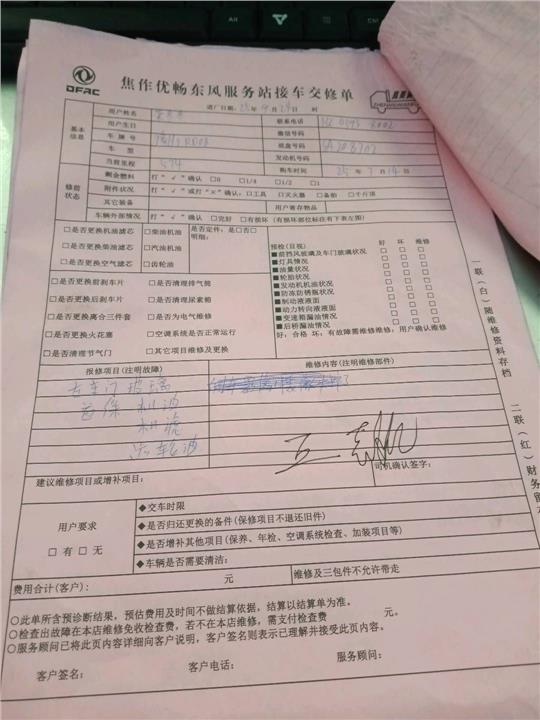 DFAC
焦作优畅东风服务站接车交修单
ZHENGXIANWANG
进厂日期: 25 年 9 月 29 日 时
基本信息
用户姓名
联系电话
用户生日
微信号码
车牌号
底盘号码
车型
发动机号码
当前里程
购车时间 25 年 7 月 14 日
修前状态
剩余燃料 打“√”确认 □0 □1/4 □1/2 □1
附件状况 打“√”或打“×”确认:□工具 □灭火器 □备胎 □千斤顶
其它装备 用户寄存物品
车辆外部情况 打“√”确认 □完好 □有损坏(有损部位标注有下表左图)
□是否更换机油滤芯 □柴油机油 是否定件:是□否□
□是否更换柴油滤芯 □汽油机油 明细:
□是否更换空气滤芯 □齿轮油
预检(目视) 好 坏 维修
■前挡风玻璃及车门玻璃状况
■灯具情况
■油量状况
■轮胎状况
■发动机机油状况
■防冻防锈瓶状况
■制动液液面
■动力转向液液面
■变速箱漏油情况
■后桥漏油情况
好;合格 坏;有故障需维修维修,用户确认维修
□是否更换前刹车片 □是否清理排气筒
□是否更换后刹车片 □是否清理尿素箱
□是否更换离合三件套 □是否为电气维修
□是否更换火花塞 □空调系统是否正常运行
□是否清理节气门 □其它项目维修及更换
报修项目(注明故障) 维修内容(注明维修部件)
右车门玻璃
首保 机油
机滤
齿轮油
司机确认签字:
建议维修项目或增补项目:
用户要求
□有 □无
◆交车时限
◆是否归还更换的备件(保修项目不退还旧件)
◆是否增补其他项目(保养、年检、空调系统检查、加装项目等)
◆车辆是否需要清洁:
费用合计(客户): 元 维修及三包件不允许带走
○此单所含预诊断结果,预估费用及时间不做结算依据,结算以结算单为准。
○检查出故障在本店维修免收检查费,若不在本店维修,需支付检查费 元。
○服务顾问已将此页内容详细向客户说明,客户签名则表示已理解并接受此页内容。
客户签名: 客户电话: 服务顾问:
一联(白)随维修资料存档
二联(红)财务留